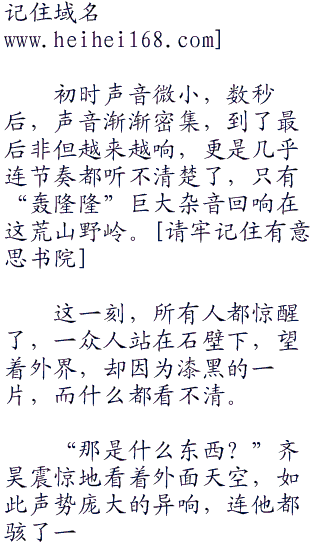 记住域名
www.heihei168.com]
初时声音微小，数秒
后，声音渐渐密集，到了最
后非但越来越响，更是几乎
连节奏都听不清楚了，只有
“轰隆隆”巨大杂音回响在
这荒山野岭。[请牢记住有意
思书院]
这一刻，所有人都惊醒
了，一众人站在石壁下，望
着外界，却因为漆黑的一
片，而什么都看不清。
“那是什么东西？”齐
昊震惊地看着外面天空，如
此声势庞大的异响，连他都
骇了一